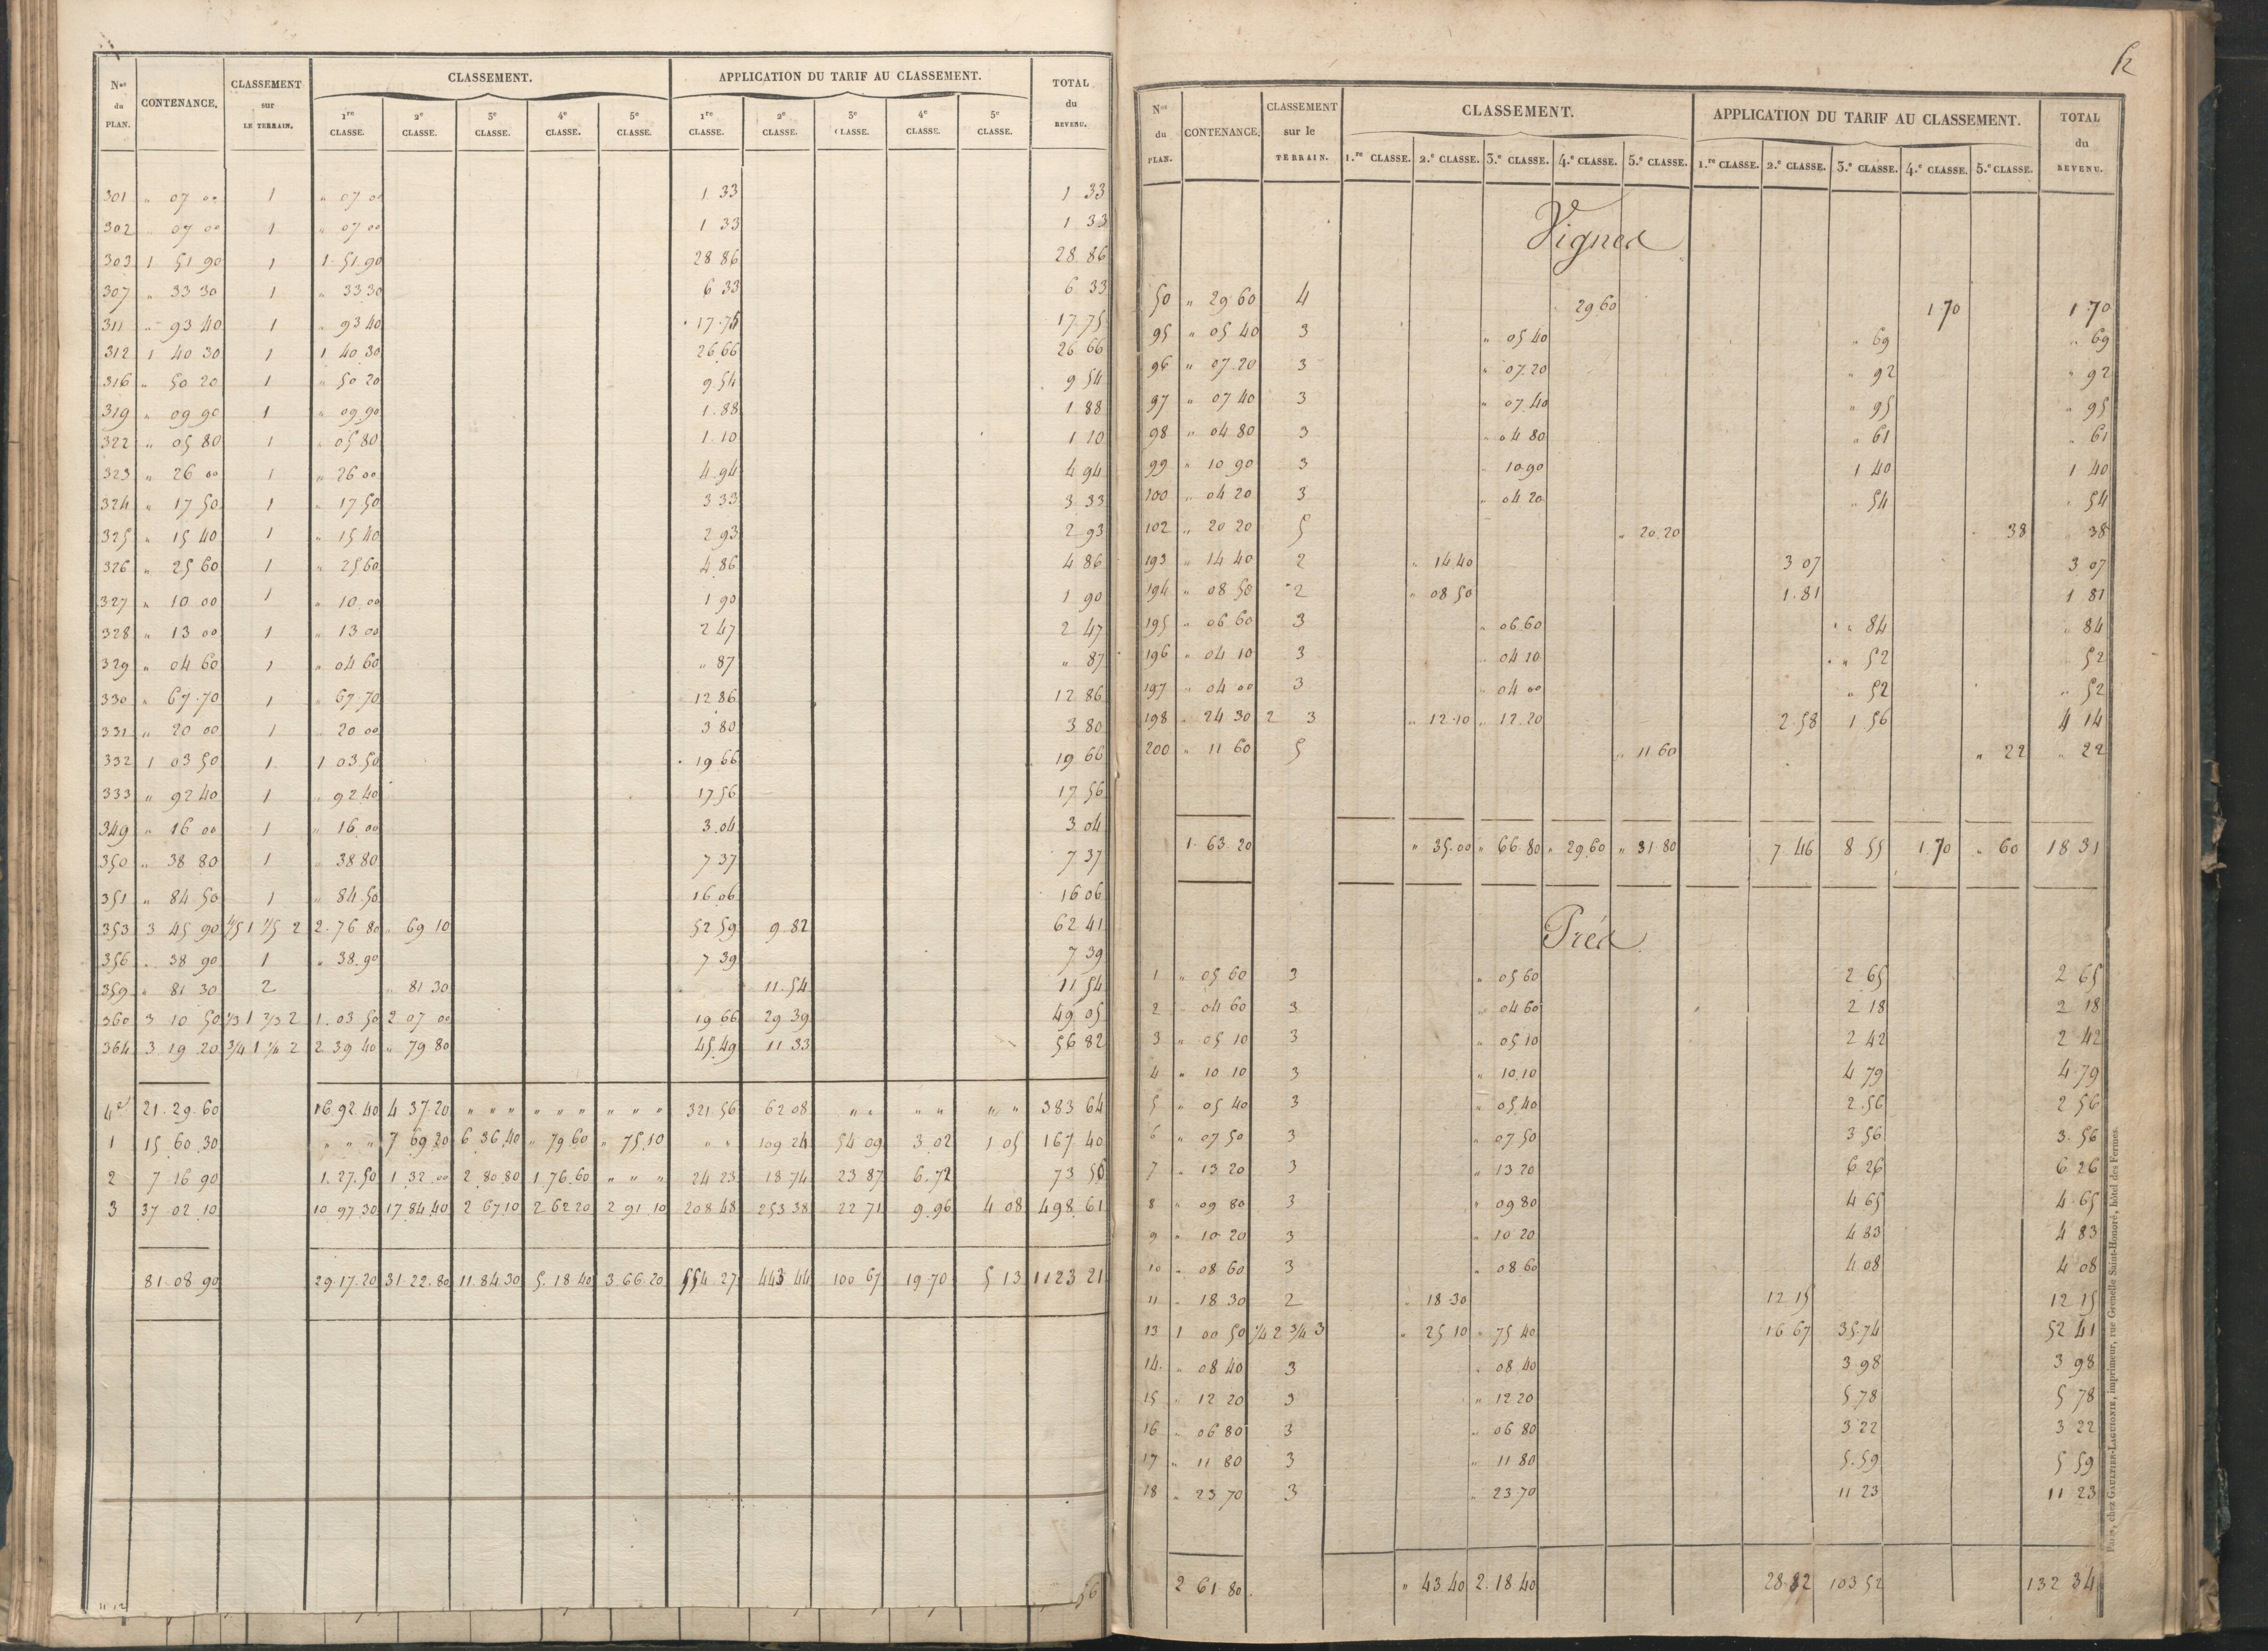 Nos du PLAN. CONTENANCE. CLASSEMENT sur LE TERRAIN. CLASSEMENT. APPLICATION DU TARIF AU CLASSEMENT. TOTAL du REVENU.
1re CLASSE. 2e CLASSE. 3e CLASSE. 4e CLASSE. 5e CLASSE. 1re CLASSE. 2e CLASSE. 3e CLASSE. 4e CLASSE. 5e CLASSE.
301 " 07 00 1 " 07 00 1 33 1 33
302 " 07 00 1 " 07 00 1 33 1 33
303 1 51 90 1 1 51 90 28 86 28 86
307 " 33 30 1 " 33 30 6 33 6 33
311 " 93 40 1 " 93 40 17 75 17 75
312 1 40 30 1 1 40 30 26 66 26 66
316 " 50 20 1 " 50 20 9 54 9 54
319 " 09 90 1 " 09 90 1 88 1 88
322 " 05 80 1 " 05 80 1 10 1 10
323 " 26 00 1 " 26 00 4 94 4 94
324 " 17 50 1 " 17 50 3 33 3 33
325 " 15 40 1 " 15 40 2 93 2 93
326 " 25 60 1 " 25 60 4 86 4 86
327 " 10 00 1 " 10 00 1 90 1 90
328 " 13 00 1 " 13 00 2 47 2 47
329 " 04 60 1 " 04 60 " 87 " 87
330 " 67 70 1 " 67 70 12 86 12 86
331 " 20 00 1 " 20 00 3 80 3 80
332 1 03 50 1 1 03 50 19 66 19 66
333 " 92 40 1 " 92 40 17 56 17 56
349 " 16 00 1 " 16 00 3 04 3 04
350 " 38 80 1 " 38 80 7 37 7 37
351 " 84 50 1 " 84 50 16 06 16 06
353 3 45 90 4/5 1 1/5 2 2 76 80 " 69 10 52 59 9 82 62 41
356 " 38 90 1 " 38 90 7 39 7 39
359 " 81 30 2 " 81 30 11 54 11 54
360 3 10 50 1/3 1 2/3 2 1 03 50 2 07 00 19 66 29 39 49 05
364 3 19 20 3/4 1 1/4 2 2 39 40 " 79 80 45 49 11 33 56 82
4e 21 29 60 16 92 40 4 37 20 " " " " " " " " " 321 56 62 08 " " " " " " 383 64
1 15 60 30 " " " 7 69 20 6 36 40 " 79 60 " 75 10 " " 109 24 54 09 3 02 1 05 167 40
2 7 16 90 1 27 50 1 32 00 2 80 80 1 76 60 " " " 24 23 18 74 23 87 6 72 73 56
3 37 02 10 10 97 30 17 84 40 2 67 10 2 62 20 2 91 10 208 48 253 38 22 71 9 96 4 08 498 61
81 08 90 29 17 20 31 22 80 11 84 30 5 18 40 3 66 20 554 27 443 44 100 67 19 70 5 13 1123 21
56
11 12
Nos du PLAN. CONTENANCE. CLASSEMENT sur le TERRAIN. CLASSEMENT. APPLICATION DU TARIF AU CLASSEMENT. TOTAL du REVENU.
1.re CLASSE. 2.e CLASSE. 3.e CLASSE. 4.e CLASSE. 5.e CLASSE. 1.re CLASSE. 2.e CLASSE. 3.e CLASSE. 4.e CLASSE. 5.e CLASSE.
Vignes
50 " 29 60 4 29 60 1 70 1 70
95 " 05 40 3 " 05 40 " 69 " 69
96 " 07 20 3 " 07 20 " 92 " 92
97 " 07 40 3 " 07 40 " 95 " 95
98 " 04 80 3 " 04 80 " 61 " 61
99 " 10 90 3 " 10 90 1 40 1 40
100 " 04 20 3 " 04 20 " 54 " 54
102 " 20 20 5 " 20 20 " 38 " 38
193 " 14 40 2 " 14 40 3 07 3 07
194 " 08 50 2 " 08 50 1 81 1 81
195 " 06 60 3 " 06 60 " 84 " 84
196 " 04 10 3 " 04 10 " 52 " 52
197 " 04 00 3 " 04 00 " 52 " 52
198 " 24 30 2 3 " 12 10 " 12 20 2 58 1 56 4 14
200 " 11 60 5 " 11 60 " 22 " 22
1 63 20 " 35 00 " 66 80 " 29 60 " 31 80 7 46 8 55 1 70 " 60 18 31
Prés
1 " 05 60 3 " 05 60 2 65 2 65
2 " 04 60 3 " 04 60 2 18 2 18
3 " 05 10 3 " 05 10 2 42 2 42
4 " 10 10 3 " 10 10 4 79 4 79
5 " 05 40 3 " 05 40 2 56 2 56
6 " 07 50 3 " 07 50 3 56 3 56
7 " 13 20 3 " 13 20 6 26 6 26
8 " 09 80 3 " 09 80 4 65 4 65
9 " 10 20 3 " 10 20 4 83 4 83
10 " 08 60 3 " 08 60 4 08 4 08
11 " 18 30 2 " 18 30 12 15 12 15
13 1 00 50 1/4 2 3/4 3 " 25 10 " 75 40 16 67 35 74 52 41
14 " 08 40 3 " 08 40 3 98 3 98
15 " 12 20 3 " 12 20 5 78 5 78
16 " 06 80 3 " 06 80 3 22 3 22
17 " 11 80 3 " 11 80 5 59 5 59
18 " 23 70 3 " 23 70 11 23 11 23
2 61 80 " 43 40 2 18 40 28 82 103 52 132 34
PARIS, chez GAULTIER-LAGUIONIE, imprimeur, rue Grenelle Saint-Honoré, hôtel des Fermes.